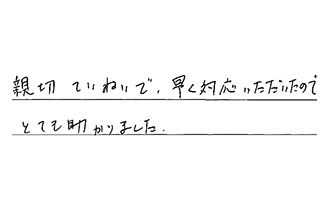 親切 ていねいで、早く対応いただいたので
とても助かりました.